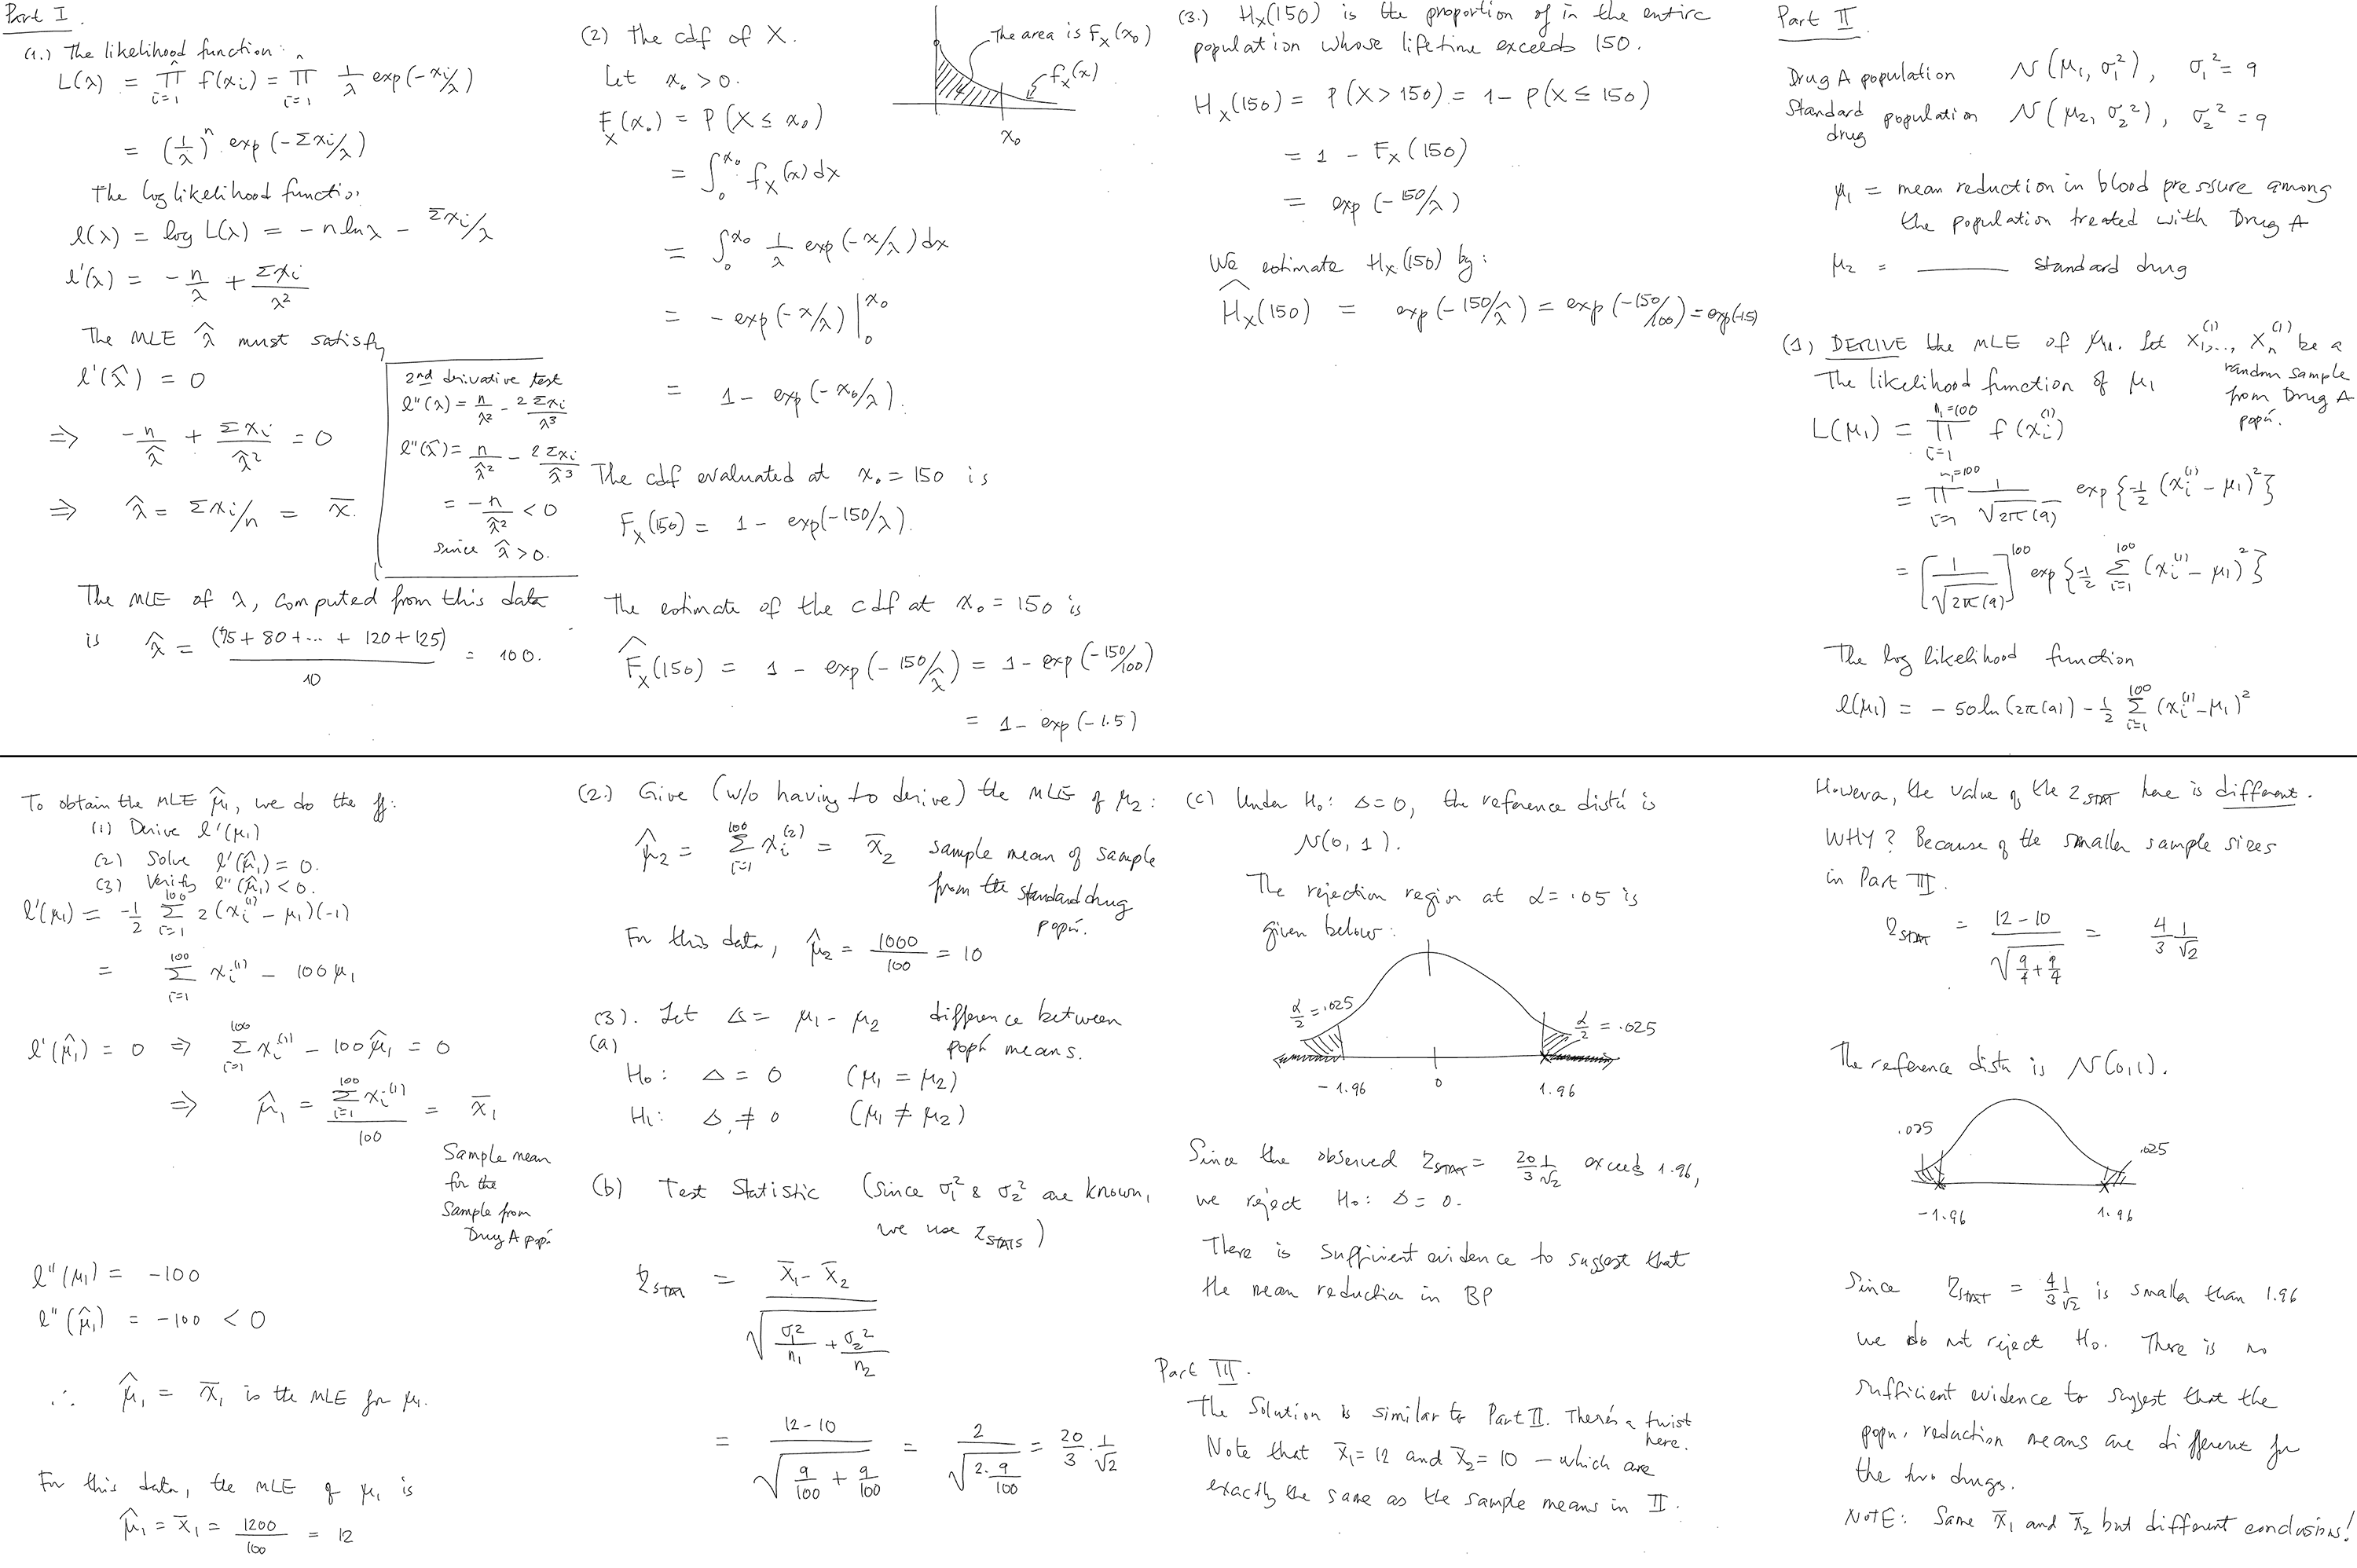 Part I
(1.) The likelihood function:
L(λ) = ∏_{i=1}^{n} f(xᵢ) = ∏_{i=1}^{n} 1/λ exp(-xᵢ/λ)
= (1/λ)ⁿ exp(-Σxᵢ/λ)
The log likelihood function
l(λ) = log L(λ) = -n ln λ - Σxᵢ/λ
l'(λ) = -n/λ + Σxᵢ/λ²
The MLE λ̂ must satisfy
l'(λ̂) = 0
⇒ -n/λ̂ + Σxᵢ/λ̂² = 0
⇒ λ̂ = Σxᵢ/n = x̄.
2nd derivative test
l''(λ) = n/λ² - 2Σxᵢ/λ³
l''(λ̂) = n/λ̂² - 2Σxᵢ/λ̂³
= -n/λ̂² < 0
since λ̂ > 0.
The MLE of λ, computed from this data
is λ̂ = (75 + 80 + ... + 120 + 125)/10 = 100.
(2) The cdf of X.
Let x₀ > 0.
F_X(x₀) = P(X ≤ x₀)
= ∫₀^{x₀} f_X(x) dx
= ∫₀^{x₀} 1/λ exp(-x/λ) dx
= - exp(-x/λ) |₀^{x₀}
= 1 - exp(-x₀/λ).
The area is F_X(x₀)
f_X(x)
x₀
The cdf evaluated at x₀ = 150 is
F_X(150) = 1 - exp(-150/λ).
The estimate of the cdf at x₀ = 150 is
F̂_X(150) = 1 - exp(-150/λ̂) = 1 - exp(-150/100)
= 1 - exp(-1.5)
(3.) H_X(150) is the proportion of in the entire
population whose lifetime exceeds 150.
H_X(150) = P(X > 150) = 1 - P(X ≤ 150)
= 1 - F_X(150)
= exp(-150/λ)
We estimate H_X(150) by:
Ĥ_X(150) = exp(-150/λ̂) = exp(-150/100) = exp(-1.5)
Part II
Drug A population N(μ₁, σ₁²), σ₁² = 9
Standard drug population N(μ₂, σ₂²), σ₂² = 9
μ₁ = mean reduction in blood pressure among
the population treated with Drug A
μ₂ = ______ standard drug
(1) DERIVE the MLE of μ₁. Let X₁⁽¹⁾,..., Xₙ⁽¹⁾ be a
random sample
from Drug A
pop'n.
The likelihood function of μ₁
L(μ₁) = ∏_{i=1}^{n₁=100} f(xᵢ⁽¹⁾)
= ∏_{i=1}^{n₁=100} 1/√(2π(9)) exp{-1/2 (xᵢ⁽¹⁾ - μ₁)²}
= [1/√(2π(9))]¹⁰⁰ exp{-1/2 Σ_{i=1}^{100} (xᵢ⁽¹⁾ - μ₁)²}
The log likelihood function
l(μ₁) = - 50 ln(2π(9)) - 1/2 Σ_{i=1}^{100} (xᵢ⁽¹⁾ - μ₁)²
To obtain the MLE μ̂₁, we do the ff:
(1) Derive l'(μ₁)
(2) Solve l'(μ̂₁) = 0.
(3) Verify l''(μ̂₁) < 0.
l'(μ₁) = -1/2 Σ_{i=1}^{100} 2(xᵢ⁽¹⁾ - μ₁)(-1)
= Σ_{i=1}^{100} xᵢ⁽¹⁾ - 100μ₁
l'(μ̂₁) = 0 ⇒ Σ_{i=1}^{100} xᵢ⁽¹⁾ - 100μ̂₁ = 0
⇒ μ̂₁ = Σ_{i=1}^{100} xᵢ⁽¹⁾/100 = x̄₁
Sample mean
for the
Sample from
Drug A pop'n
l''(μ₁) = -100
l''(μ̂₁) = -100 < 0
∴ μ̂₁ = x̄₁ is the MLE for μ₁.
For this data, the MLE of μ₁ is
μ̂₁ = x̄₁ = 1200/100 = 12
(2.) Give (w/o having to derive) the MLE of μ₂:
μ̂₂ = Σ_{i=1}^{100} xᵢ⁽²⁾ = x̄₂ sample mean of sample
from the standard drug
pop'n.
For this data, μ̂₂ = 1000/100 = 10
(3). Let Δ = μ₁ - μ₂ difference between
pop'n means.
(a)
H₀: Δ = 0 (μ₁ = μ₂)
H₁: Δ ≠ 0 (μ₁ ≠ μ₂)
(b) Test Statistic (since σ₁² & σ₂² are known,
we use Z_STATS)
Z_STAT = (x̄₁ - x̄₂)/√(σ₁²/n₁ + σ₂²/n₂)
= (12 - 10)/√(9/100 + 9/100) = 2/√(2·9/100) = 20/3 · 1/√2
(c) Under H₀: Δ = 0, the reference dist'n is
N(0, 1).
The rejection region at α = .05 is
given below:
α/2 = .025
α/2 = .025
-1.96 0 1.96
Since the observed Z_STAT = 20/3 1/√2 exceeds 1.96,
we reject H₀: Δ = 0.
There is sufficient evidence to suggest that
the mean reduction in BP
Part III.
The solution is similar to Part II. There's a twist
here.
Note that x̄₁ = 12 and x̄₂ = 10 — which are
exactly the same as the sample means in II.
However, the value of the Z_STAT here is different.
WHY? Because of the smaller sample sizes
in Part III.
Z_STAT = (12 - 10)/√(9/4 + 9/4) = 4/3 1/√2
The reference distn is N(0,1).
.025
.025
-1.96 1.96
Since Z_STAT = 4/3 1/√2 is smaller than 1.96
we do not reject H₀. There is no
sufficient evidence to suggest that the
popn. reduction means are different for
the two drugs.
NOTE: Same x̄₁ and x̄₂ but different conclusions!